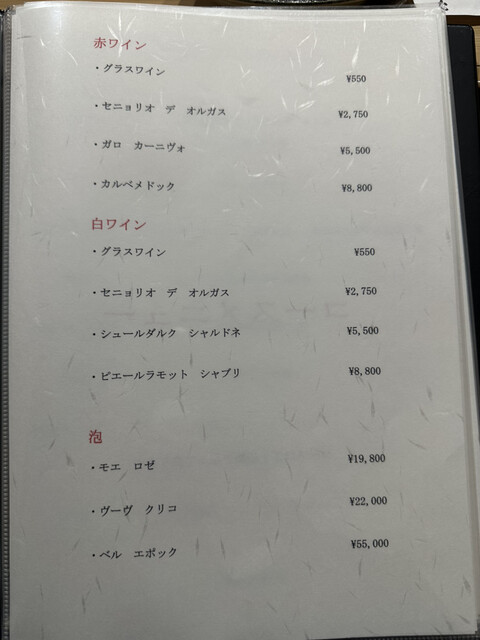 赤ワイン
・グラスワイン ¥550
・セニョリオ デ オルガス ¥2,750
・ガロ カーニヴォ ¥5,500
・カルベメドック ¥8,800
白ワイン
・グラスワイン ¥550
・セニョリオ デ オルガス ¥2,750
・シュールダルク シャルドネ ¥5,500
・ピエールラモット シャブリ ¥8,800
泡
・モエ ロゼ ¥19,800
・ヴーヴ クリコ ¥22,000
・ベル エポック ¥55,000